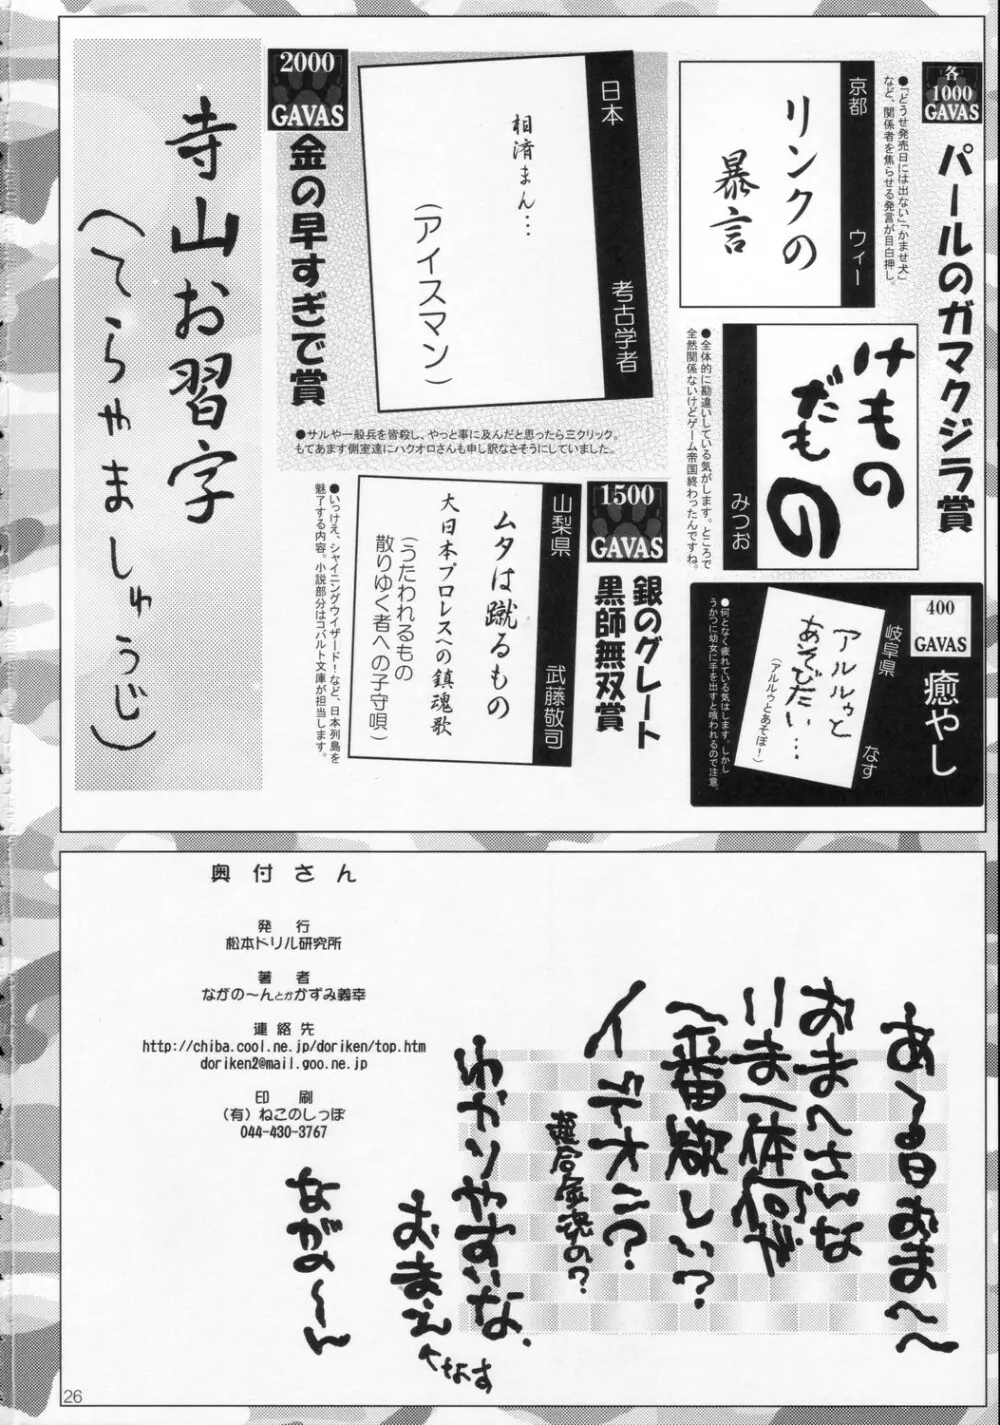 各
1000
GAVAS
パールのガマクジラ賞
京都　ウィー
リンクの
暴言
●「どうせ発売日には出ない」「かませ犬」
など、関係者を焦らせる発言が目白押し。
みつお
けもの
だもの
●全体的に勘違いしている気がします。ところで
全然関係ないけどゲーム帝国終わったんですね。
400
GAVAS
癒やし
岐阜県　なす
アルルゥと
あそびたい…
(アルルゥとあそぼ!)
●何となく疲れている気はします。しかし
うかつに幼女に手を出すと喰われるので注意。
2000
GAVAS
金の早すぎで賞
日本　考古学者
相済まん…
(アイスマン)
●サルや一般兵を皆殺し、やっと事に及んだと思ったら三クリック。
もてあます側室達にハクオロさんも申し訳なさそうにしていました。
1500
GAVAS
銀のグレート
黒師無双賞
山梨県　武藤敬司
ムタは蹴るもの
大日本プロレスへの鎮魂歌
(うたわれるもの
散りゆく者への子守唄)
●いっけえ、シャイニングウィザード!など、日本列島を
魅了する内容。小説部分はコバルト文庫が担当します。
寺山お習字
(てらやましゅうじ)
奥付さん
発行
松本ドリル研究所
著者
ながの〜んとかかずみ義幸
連絡先
http://chiba.cool.ne.jp/doriken/top.htm
doriken2@mail.goo.ne.jp
印刷
(有)ねこのしっぽ
044-430-3767
あ〜る日おま〜〜
おまへさんな
いま一体何が
一番欲しい?
イデオン?
超合金魂の?
わかりやすいな、
おまえ
くなす
ながの〜ん
26